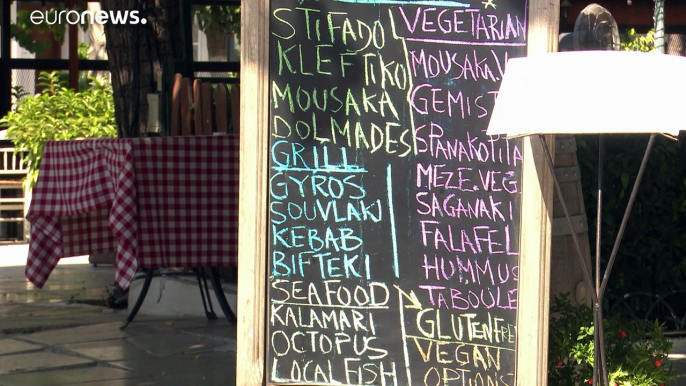 euronews.
STIFADO
KLEFTIKO
MOUSAKA
DOLMADES
GRILL
GYROS
SOUVLAKI
KEBAB
BIFTEKI
SEAFOOD
KALAMARI
OCTOPUS
LOCAL FISH
VEGETARIAN
MOUSAKA.V
GEMIST
SPANAKOPITA
MEZE.VEG
SAGANAKI
FALAFEL
HUMMUS
TABOULE
GLUTENFRE
VEGAN
OPTIONS